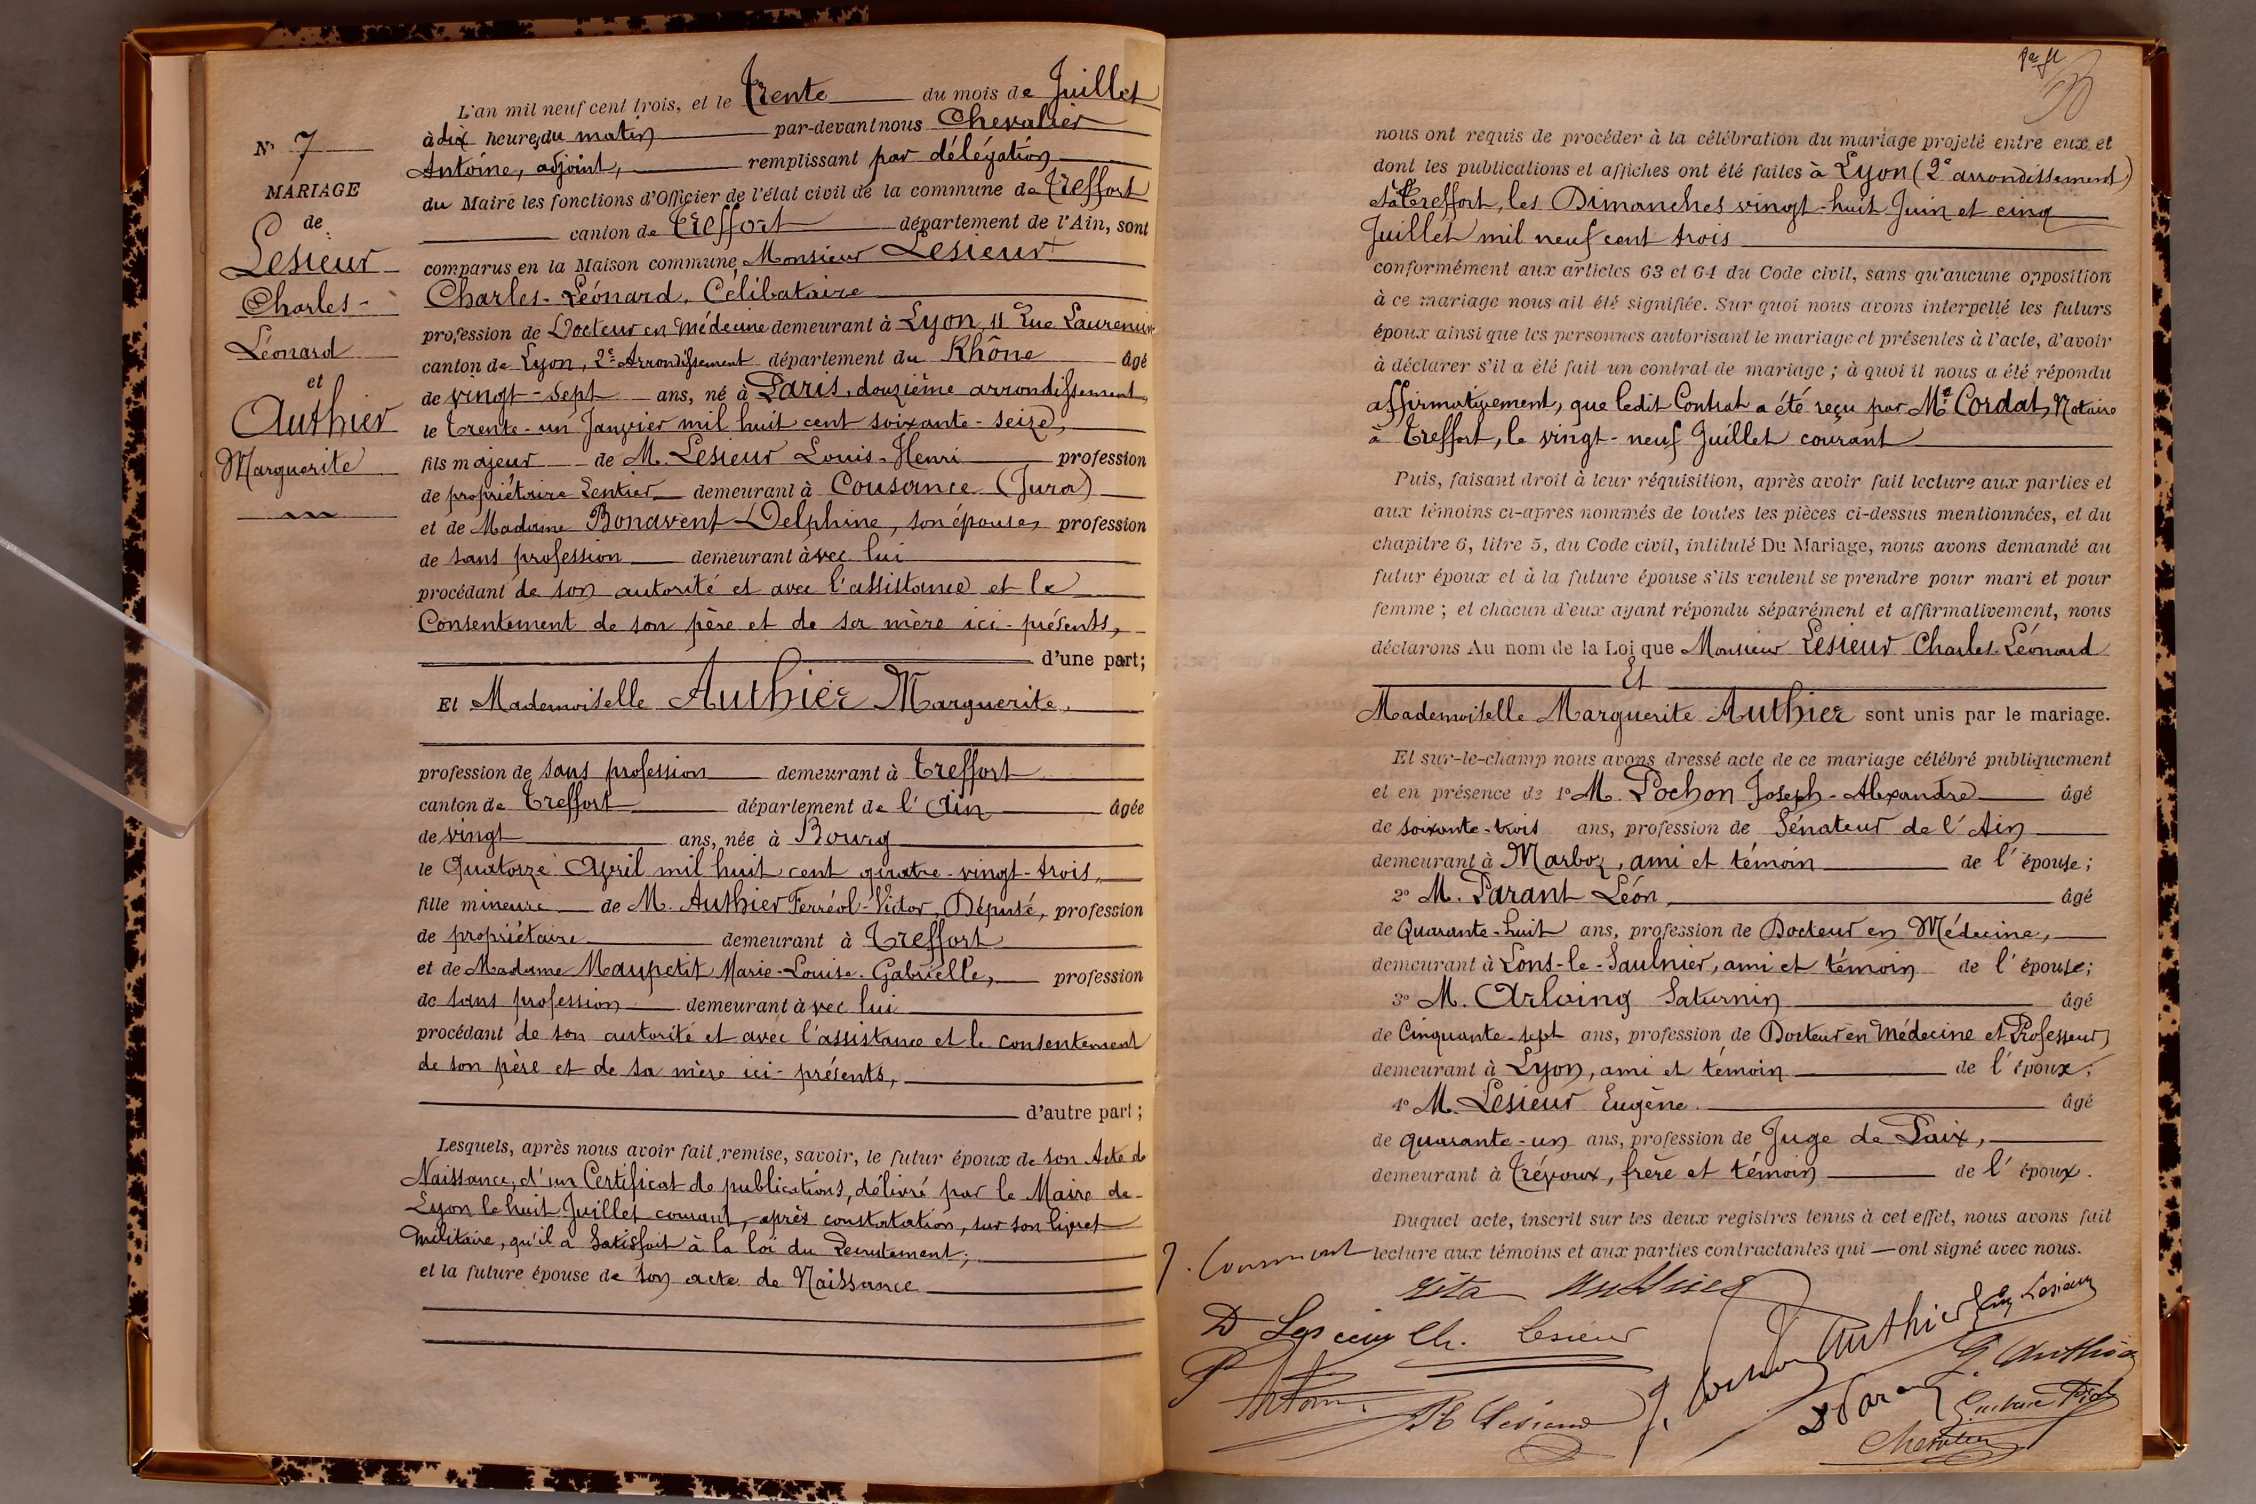 L'an mil neuf cent trois, et le Trente du mois de Juillet
à dix heures du matin par-devant nous Chevalier
Antoine, adjoint, remplissant par délégation
du Maire les fonctions d'Officier de l'état civil de la commune de Treffort
canton de Treffort département de l'Ain, sont
comparus en la Maison commune, Monsieur Lesieur
Charles-Léonard, Célibataire
profession de Docteur en Médecine demeurant à Lyon, 11 Rue
canton de Lyon, 2e Arrondissement département du Rhône âgé
de vingt-sept ans, né à Paris, douzième arrondissement,
le trente-un Janvier mil huit cent soixante-seize,
fils majeur de M. Lesieur Louis-Henri profession
de propriétaire Rentier demeurant à Cousance (Jura)
et de Madame Bonavent Delphine, son épouse, profession
de sans profession demeurant avec lui
procédant de son autorité et avec l'assistance et le
Consentement de son père et de sa mère ici-présents,
d'une part;
Et Mademoiselle Authier Marguerite,
profession de sans profession demeurant à Treffort
canton de Treffort département de l'Ain âgée
de vingt ans, née à Bourg
le Quatorze Avril mil huit cent quatre-vingt-trois,
fille mineure de M. Authier Ferréol-Victor, Député, profession
de propriétaire demeurant à Treffort
et de Madame Maupetit Marie-Louise-Gabrielle, profession
de sans profession demeurant avec lui
procédant de son autorité et avec l'assistance et le consentement
de son père et de sa mère ici-présents,
d'autre part;
Lesquels, après nous avoir fait remise, savoir, le futur époux de son Acte de
Naissance, d'un Certificat de publications, délivré par le Maire de
Lyon le huit Juillet courant, après constatation, sur son livret
militaire, qu'il a satisfait à la loi du Recrutement;
et la future épouse de son acte de Naissance
No 7
MARIAGE
de
Lesieur
Charles-
Léonard
et
Authier
Marguerite
nous ont requis de procéder à la célébration du mariage projeté entre eux et
dont les publications et affiches ont été faites à Lyon (2e arrondissement)
et à Treffort, les Dimanches vingt-huit Juin et cinq
Juillet mil neuf cent trois
conformément aux articles 63 et 64 du Code civil, sans qu'aucune opposition
à ce mariage nous ait été signifiée. Sur quoi nous avons interpellé les futurs
époux ainsi que les personnes autorisant le mariage et présentes à l'acte, d'avoir
à déclarer s'il a été fait un contrat de mariage; à quoi il nous a été répondu
affirmativement, que ledit Contrat a été reçu par Me Cordat, Notaire
à Treffort, le vingt-neuf Juillet courant
Puis, faisant droit à leur réquisition, après avoir fait lecture aux parties et
aux témoins ci-après nommés de toutes les pièces ci-dessus mentionnées, et du
chapitre 6, titre 5, du Code civil, intitulé Du Mariage, nous avons demandé au
futur époux et à la future épouse s'ils veulent se prendre pour mari et pour
femme; et chacun d'eux ayant répondu séparément et affirmativement, nous
déclarons Au nom de la Loi que Monsieur Lesieur Charles-Léonard
Et
Mademoiselle Marguerite Authier sont unis par le mariage.
Et sur-le-champ nous avons dressé acte de ce mariage célébré publiquement
et en présence de 1o M. Pochon Joseph-Alexandre âgé
de soixante-trois ans, profession de Sénateur de l'Ain
demeurant à Marboz, ami et témoin de l'épouse;
2o M. Parant Léon, âgé
de Quarante-huit ans, profession de Docteur en Médecine,
demeurant à Lons-le-Saulnier, ami et témoin de l'épouse;
3o M. Arloing Saturnin âgé
de Cinquante-sept ans, profession de Docteur en Médecine et Professeur,
demeurant à Lyon, ami et témoin de l'époux;
4o M. Lesieur Eugène. âgé
de quarante-un ans, profession de Juge de Paix,
demeurant à Trévoux, frère et témoin de l'époux.
Duquel acte, inscrit sur les deux registres tenus à cet effet, nous avons fait
lecture aux témoins et aux parties contractantes qui ont signé avec nous.
Rita Authier
D Lesieur Ch. Lesieur
Authier Eug Lesieur
G. Authier
Parant
Lesieur
Chevalier